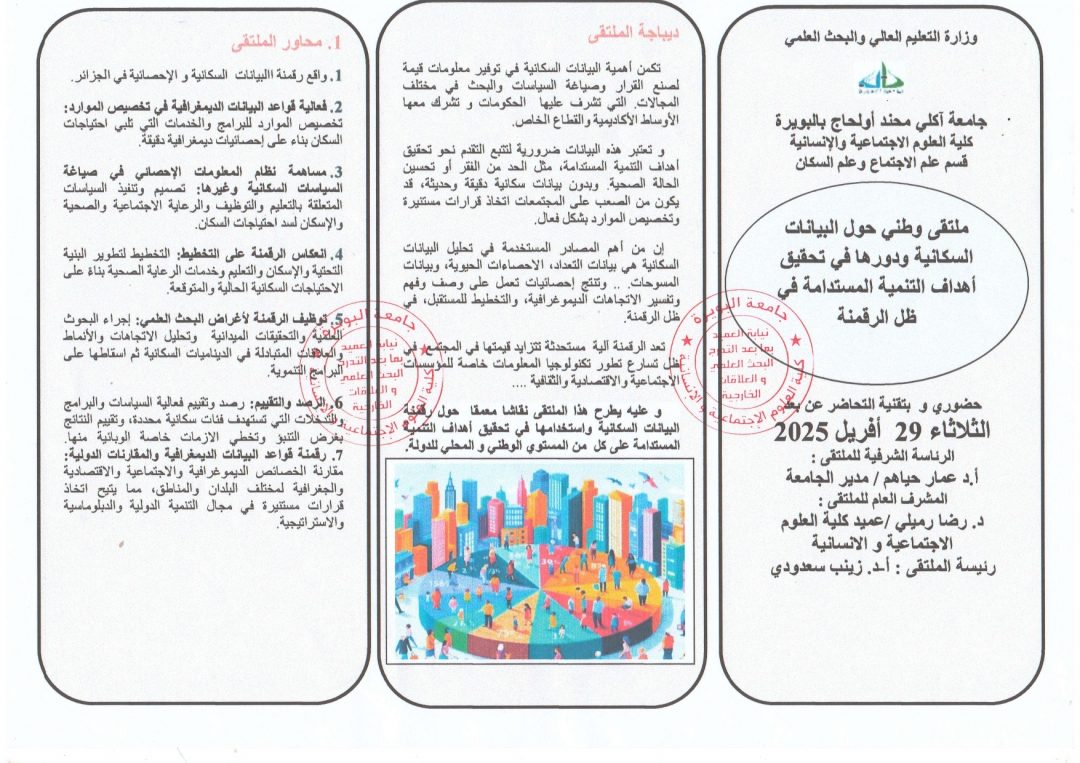 وزارة التعليم العالي والبحث العلمي
جامعة آكلي محند أولحاج بالبويرة
كلية العلوم الاجتماعية والإنسانية
قسم علم الاجتماع وعلم السكان
ملتقى وطني حول البيانات
السكانية ودورها في تحقيق
أهداف التنمية المستدامة في
ظل الرقمنة
حضوري و بتقنية التحاضر عن بعد
الثلاثاء 29 أفريل 2025
الرئاسة الشرفية للملتقى :
أ.د عمار حياهم / مدير الجامعة
المشرف العام للملتقى :
د. رضا رميلي /عميد كلية العلوم
الاجتماعية و الانسانية
رئيسة الملتقى : أ-د. زينب سعدودي
ديباجة الملتقى
تكمن أهمية البيانات السكانية في توفير معلومات قيمة
لصنع القرار وصياغة السياسات والبحث في مختلف
المجالات. التي تشرف عليها الحكومات و تشرك معها
الأوساط الأكاديمية والقطاع الخاص.
و تعتبر هذه البيانات ضرورية لتتبع التقدم نحو تحقيق
أهداف التنمية المستدامة، مثل الحد من الفقر أو تحسين
الحالة الصحية. وبدون بيانات سكانية دقيقة وحديثة، قد
يكون من الصعب على المجتمعات اتخاذ قرارات مستنيرة
وتخصيص الموارد بشكل فعال.
إن من أهم المصادر المستخدمة في تحليل البيانات
السكانية هي بيانات التعداد، الاحصاءات الحيوية، وبيانات
المسوحات. .. وتنتج إحصائيات تعمل على وصف وفهم
وتفسير الاتجاهات الديموغرافية، والتخطيط للمستقبل، في
ظل الرقمنة.
تعد الرقمنة آلية مستحدثة تتزايد قيمتها في المجتمع، في
ظل تسارع تطور تكنولوجيا المعلومات خاصة للمؤسسات
الاجتماعية والاقتصادية والثقافية ....
و عليه يطرح هذا الملتقى نقاشا معمقا حول رقمنة
البيانات السكانية واستخدامها في تحقيق أهداف التنمية
المستدامة على كل من المستوي الوطني و المحلي للدولة.
1. محاور الملتقى
1. واقع رقمنة االبيانات السكانية و الإحصائية في الجزائر.
2. فعالية قواعد البيانات الديمغرافية في تخصيص الموارد:
تخصيص الموارد للبرامج والخدمات التي تلبي احتياجات
السكان بناء على إحصائيات ديمغرافية دقيقة.
3. مساهمة نظام المعلومات الإحصائي في صياغة
السياسات السكانية وغيرها: تصميم وتنفيذ السياسات
المتعلقة بالتعليم والتوظيف والرعاية الاجتماعية والصحية
والإسكان لسد احتياجات السكان.
4. انعكاس الرقمنة على التخطيط: التخطيط لتطوير البنية
التحتية والإسكان والتعليم وخدمات الرعاية الصحية بناء على
الاحتياجات السكانية الحالية والمتوقعة.
5. توظيف الرقمنة لأغراض البحث العلمي: إجراء البحوث
العلمية والتحقيقات الميدانية وتحليل الاتجاهات والأنماط
والعلاقات المتبادلة في الديناميات السكانية ثم اسقاطها على
البرامج التنموية.
6. الرصد والتقييم: رصد وتقييم فعالية السياسات والبرامج
والتدخلات التي تستهدف فئات سكانية محددة، وتقييم النتائج
بغرض التنبؤ وتخطي الازمات خاصة الوبائية منها.
7. رقمنة قواعد البيانات الديمغرافية والمقارنات الدولية:
مقارنة الخصائص الديموغرافية والاجتماعية والاقتصادية
والجغرافية لمختلف البلدان والمناطق، مما يتيح اتخاذ
قرارات مستنيرة في مجال التنمية الدولية والدبلوماسية
والاستراتيجية.
جامعة البويرة
نيابة العميد
بما بعد التدرج
البحث العلمي
و العلاقات
الخارجية
كلية العلوم الإجتماعية و الإنسانية
جامعة البويرة
نيابة العميد
بما بعد التدرج
البحث العلمي
و العلاقات
الخارجية
كلية العلوم الإجتماعية و الإنسانية